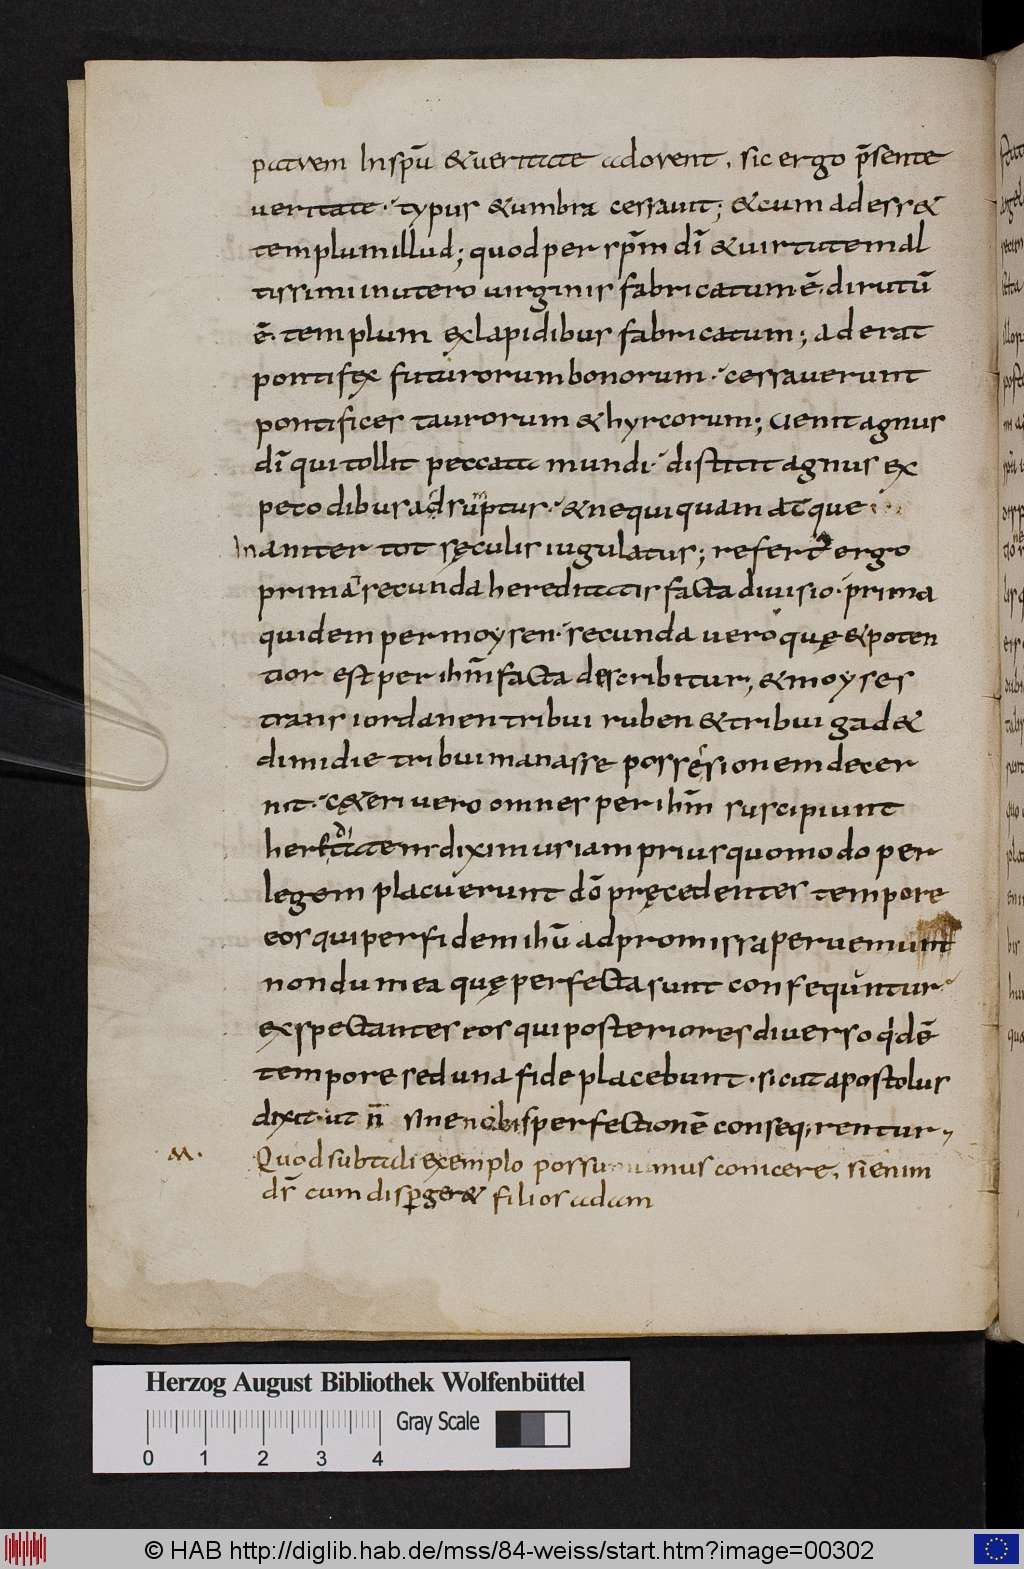 patrem In spū & ueritate adorent, sic ergo p̄sente
ueritate· typus & umbra cessauit; & cum adess&
templum illud; quod per spm̄ dī & uirtutem al
tissimi in utero uirginis fabricatum ē, dirutū
ē· templum ex lapidibus fabricatum; aderat
pontifex futurorum bonorum· cessauerunt
pontifices taurorum & hyrcorum; Uenit agnus
dī qui tollit peccata mundi· distitit agnus ex
peco dibus adsumptus· & nequiquam atque
Inaniter tot sęculis iugulatus; refert ergo
prima secunda hereditatis facta diuisio· prima
quidem per moysen· secunda uero quę & poten
tior est per ihm̄ facta describitur; & moyses
trans iordanen tribui ruben & tribui gad &
dimidie tribui manasse possęsionem decer
nit· c&eri uero omnes per ihm̄ suscipiunt
diximus iam prius quomodo per
legem placuerunt dō pręcedentes tempore
eos qui per fidem ihū ad promissa perueniunt
nondum ea quę perfecta sunt consequntur·
exspectantes eos qui posteriores diuerso qdē
tempore sed una fide placebunt· sicut apostolus
dixit· ut n̄ sine nobis perfectionē conseq;rentur,
M. Quod sub tali exemplo possumus conicere, si enim
ds̄ cum disperger& filios adam
Herzog August Bibliothek Wolfenbüttel
Gray Scale
0 1 2 3 4
© HAB http://diglib.hab.de/mss/84-weiss/start.htm?image=00302